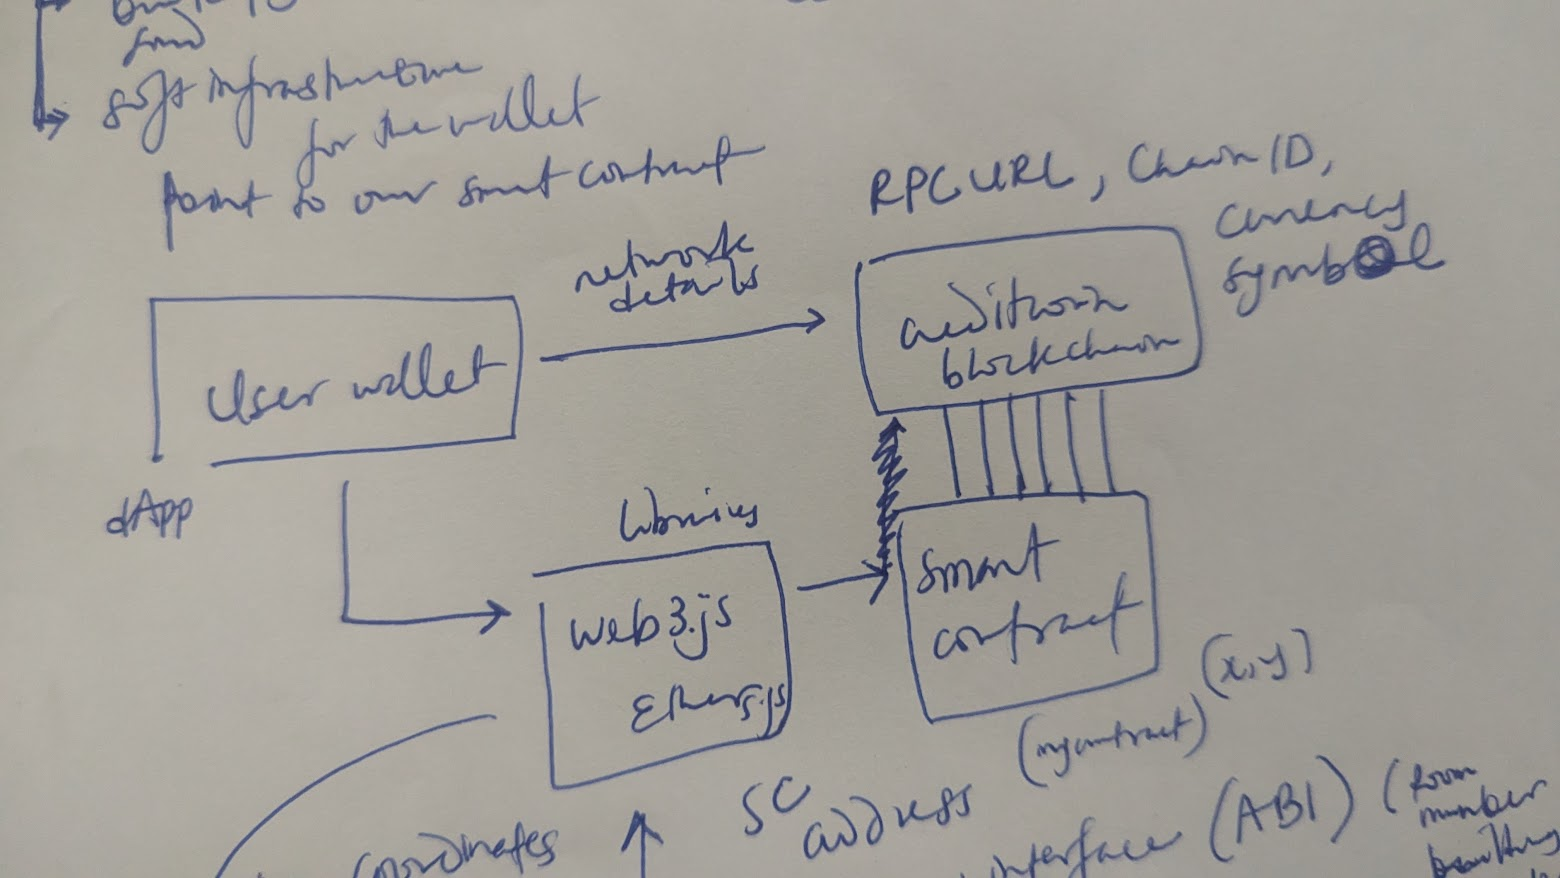 soft infrastructure
for the wallet
point to our smart contract
RPC URL, Chain ID,
Currency
symbol
network
details
User wallet
blockchain
dApp
libraries
web3.js
Ethers.js
smart
contract
(x,y)
(mycontract)
SC
address
coordinates
interface (ABI) (room
number